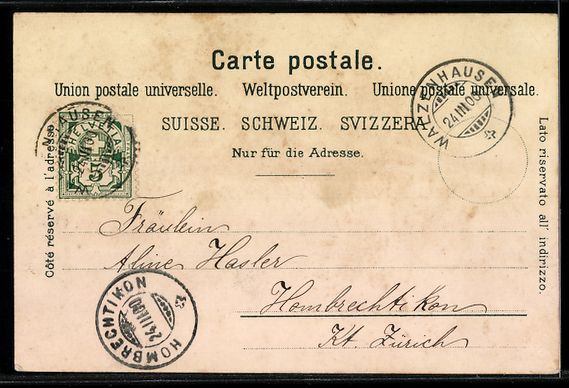 Carte postale.
Union postale universelle. Weltpostverein. Unione postale universale.
SUISSE. SCHWEIZ. SVIZZERA
Nur für die Adresse.
Côté réservé à l'adresse
Lato riservato all' indirizzo.
WALZENHAUSEN
24 III 00
HELVETIA
5
Fräulein
Aline Hasler
Hombrechtikon
Kt. Zürich
HOMBRECHTIKON
24 III 00